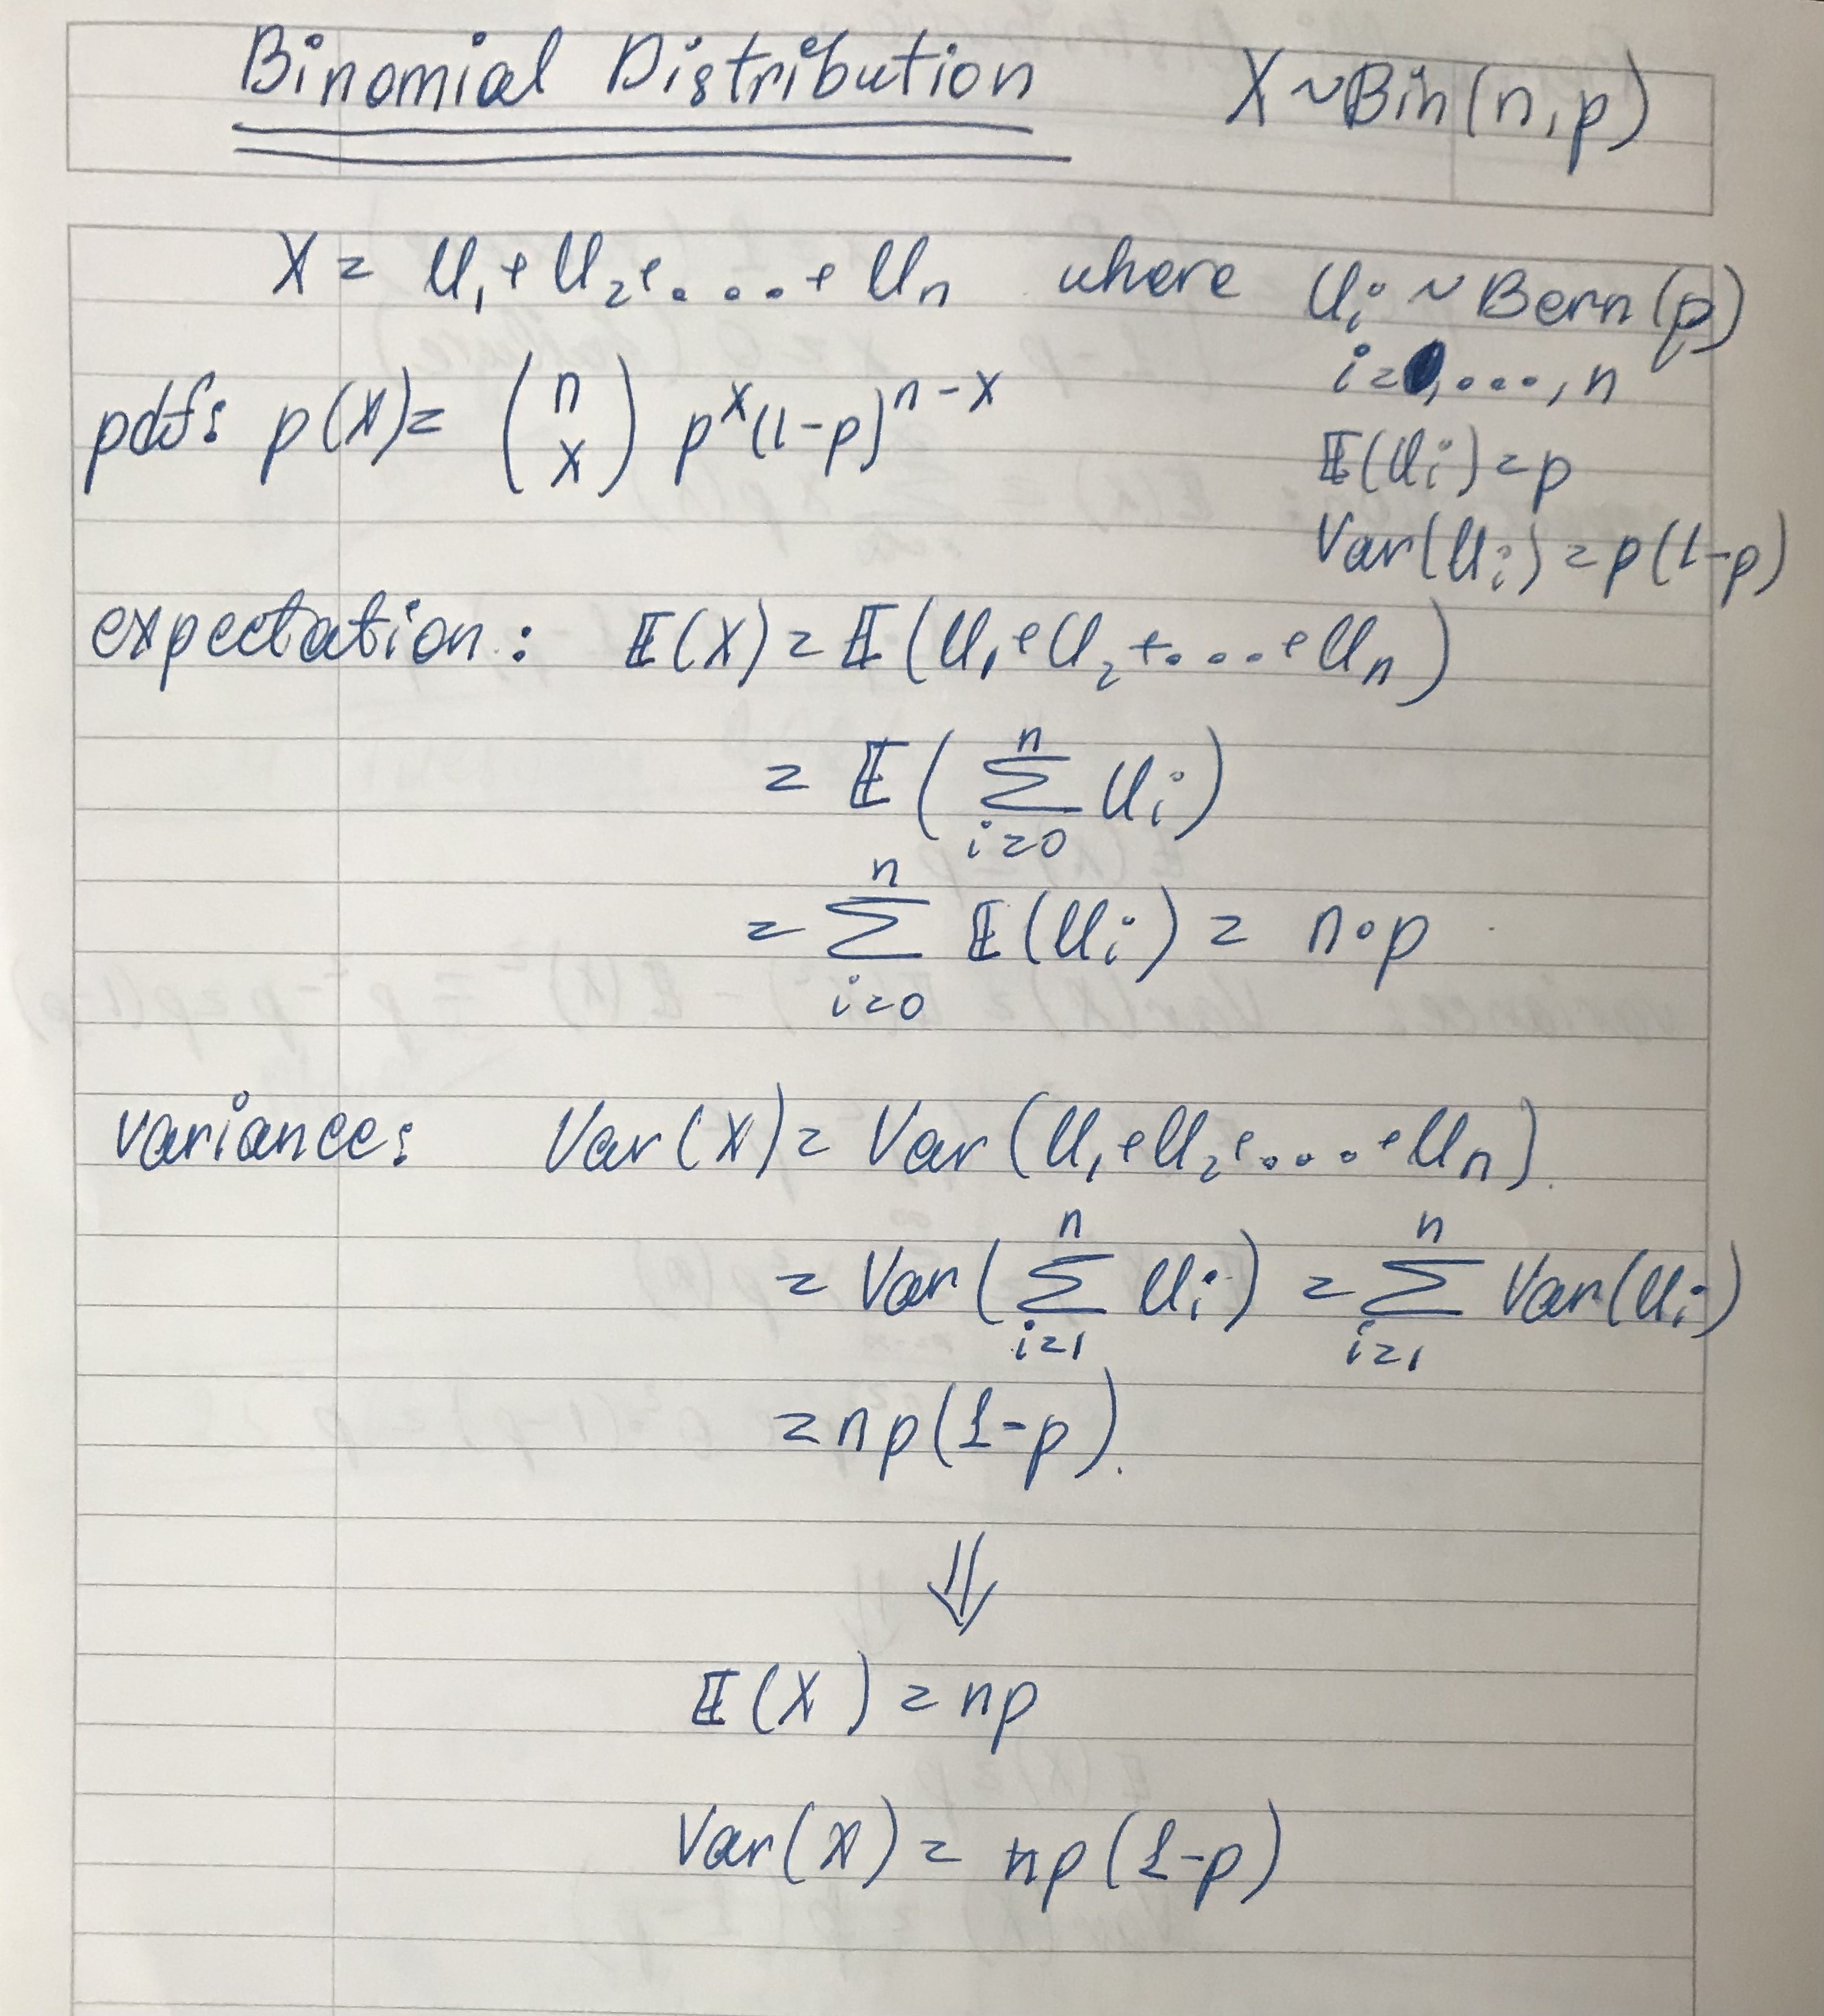 Binomial Distribution X ~ Bin(n,p)
X = U₁ + U₂ + .... + Uₙ where Uᵢ ~ Bern(p)
i = , ..., n
pdf: p(X) = (n x) p^x (1-p)^{n-x}
𝔼(Uᵢ) = p
Var(Uᵢ) = p(1-p)
expectation: 𝔼(X) = 𝔼(U₁ + U₂ + .... + Uₙ)
= 𝔼( ∑_{i=0}^{n} Uᵢ )
= ∑_{i=0}^{n} 𝔼(Uᵢ) = n·p
variance: Var(X) = Var(U₁ + U₂ + .... + Uₙ).
= Var( ∑_{i=1}^{n} Uᵢ ) = ∑_{i=1}^{n} Var(Uᵢ)
= np(1-p).
⇓
𝔼(X) = np
Var(X) = np(1-p)